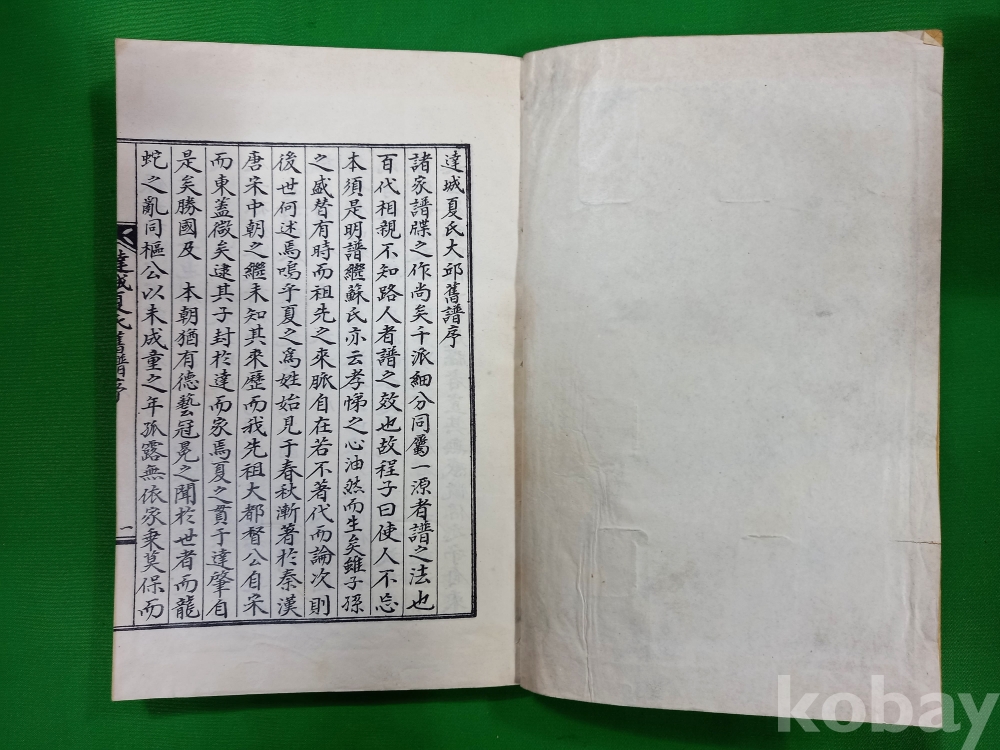 達城夏氏大邱舊譜序
諸家譜牒之作尚矣千派細分同屬一源者譜之法也
百代相親不知路人者譜之效也故程子曰使人不忘
本須是明譜繼蘇氏亦云孝悌之心油然而生矣雖子孫
之盛替有時而祖先之來脈自在若不著代而論次則
後世何述焉嗚乎夏之爲姓始見于春秋漸著於秦漢
唐宋中朝之繼未知其來歷而我先祖大都督公自宋
而東蓋微矣逮其子封於達而家焉夏之貫于達肇自
是矣勝國及 本朝猶有德藝冠冕之聞於世者而龍
蛇之亂同樞公以未成童之年孤露無依家乘莫保而
達城夏氏舊譜序
一
kobay